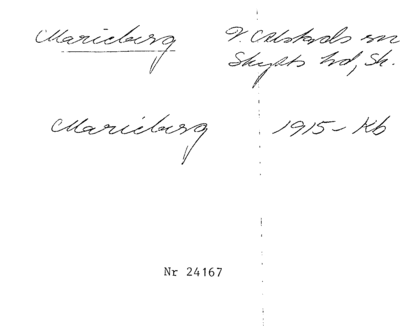 Marieberg V. Alstads sn
Skytts hd, Sk.
Marieberg 1915- Kb
Nr 24167